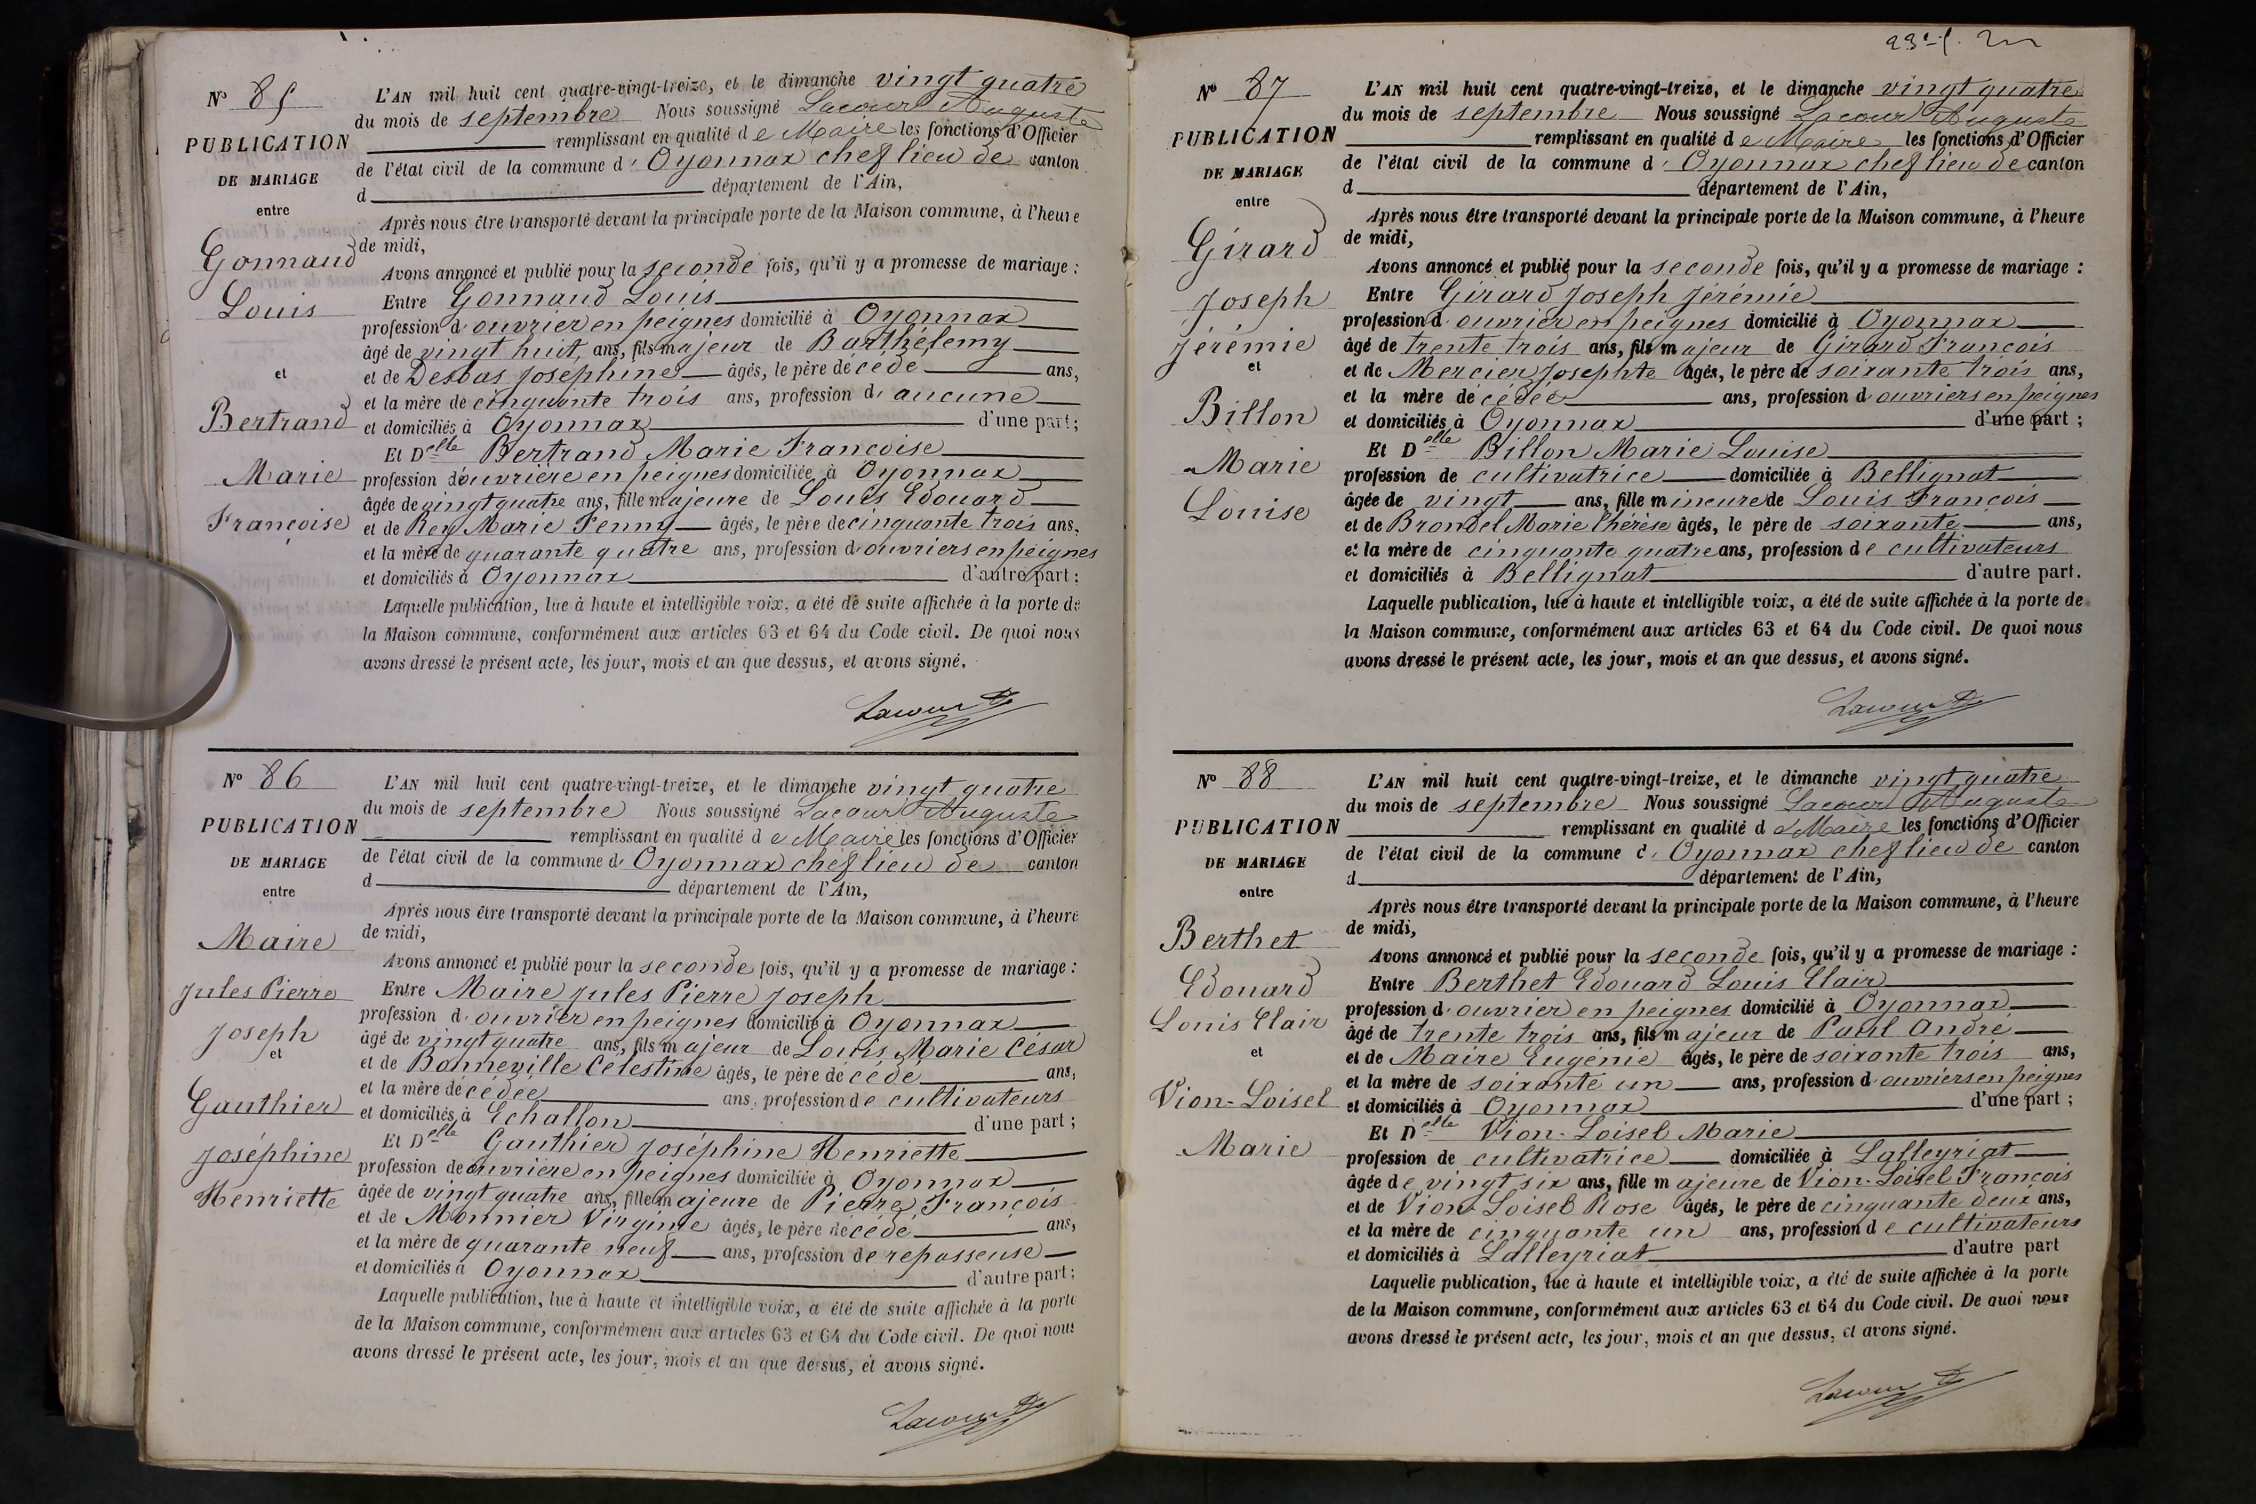 Nº 85
PUBLICATION
DE MARIAGE
entre
Gonnaud
Louis
et
Bertrand
Marie
Françoise
L'AN mil huit cent quatre-vingt-treize, et le dimanche vingt quatre
du mois de septembre Nous soussigné Lacour Auguste
remplissant en qualité de Maire les fonctions d'Officier
de l'état civil de la commune d'Oyonnax chef lieu de canton
d département de l'Ain,
Après nous être transporté devant la principale porte de la Maison commune, à l'heure
de midi,
Avons annoncé et publié pour la seconde fois, qu'il y a promesse de mariage :
Entre Gonnaud Louis
profession d'ouvrier en peignes domicilié à Oyonnax
âgé de vingt huit ans, fils majeur de Barthélemy
et de Desbas Joséphine âgés, le père décédé ans,
et la mère de cinquante trois ans, profession d'aucune
et domiciliés à Oyonnax d'une part ;
Et Delle Bertrand Marie Françoise
profession d'ouvrière en peignes domiciliée à Oyonnax
âgée de vingt quatre ans, fille majeure de Louis Edouard
et de Rey Marie Fenny âgés, le père de cinquante trois ans,
et la mère de quarante quatre ans, profession d'ouvriers en peignes
et domiciliés à Oyonnax d'autre part ;
Laquelle publication, lue à haute et intelligible voix, a été de suite affichée à la porte de
la Maison commune, conformément aux articles 63 et 64 du Code civil. De quoi nous
avons dressé le présent acte, les jour, mois et an que dessus, et avons signé.
Lacour
Nº 86
PUBLICATION
DE MARIAGE
entre
Maire
Jules Pierre
Joseph
et
Gauthier
Joséphine
Henriette
L'AN mil huit cent quatre-vingt-treize, et le dimanche vingt quatre
du mois de septembre Nous soussigné Lacour Auguste
remplissant en qualité de Maire les fonctions d'Officier
de l'état civil de la commune d'Oyonnax chef lieu de canton
d département de l'Ain,
Après nous être transporté devant la principale porte de la Maison commune, à l'heure
de midi,
Avons annoncé et publié pour la seconde fois, qu'il y a promesse de mariage :
Entre Maire Jules Pierre Joseph
profession d'ouvrier en peignes domicilié à Oyonnax
âgé de vingt quatre ans, fils majeur de Louis Marie César
et de Bonneville Célestine âgés, le père décédé ans,
et la mère décédée ans, profession de cultivateurs
et domiciliés à Echallon d'une part ;
Et Delle Gauthier Joséphine Henriette
profession de ouvrière en peignes domiciliée à Oyonnax
âgée de vingt quatre ans, fille majeure de Pierre François
et de Monnier Virginie âgés, le père décédé ans,
et la mère de quarante neuf ans, profession de repasseuse
et domiciliés à Oyonnax d'autre part ;
Laquelle publication, lue à haute et intelligible voix, a été de suite affichée à la porte
de la Maison commune, conformément aux articles 63 et 64 du Code civil. De quoi nous
avons dressé le présent acte, les jour, mois et an que dessus, et avons signé.
Lacour
Nº 87
PUBLICATION
DE MARIAGE
entre
Girard
Joseph
Jérémie
et
Billon
Marie
Louise
L'AN mil huit cent quatre-vingt-treize, et le dimanche vingt quatre
du mois de septembre Nous soussigné Lacour Auguste
remplissant en qualité de Maire les fonctions d'Officier
de l'état civil de la commune d'Oyonnax chef lieu de canton
d département de l'Ain,
Après nous être transporté devant la principale porte de la Maison commune, à l'heure
de midi,
Avons annoncé et publié pour la seconde fois, qu'il y a promesse de mariage :
Entre Girard Joseph Jérémie
profession d'ouvrier en peignes domicilié à Oyonnax
âgé de trente trois ans, fils majeur de Girard François
et de Mercier Josephte âgés, le père de soixante trois ans,
et la mère décédée ans, profession d'ouvriers en peignes
et domiciliés à Oyonnax d'une part ;
Et Delle Billon Marie Louise
profession de cultivatrice domiciliée à Bellignat
âgée de vingt ans, fille mineure de Louis François
et de Brondel Marie Thérèse âgés, le père de soixante ans,
et la mère de cinquante quatre ans, profession de cultivateurs
et domiciliés à Bellignat d'autre part.
Laquelle publication, lue à haute et intelligible voix, a été de suite affichée à la porte de
la Maison commune, conformément aux articles 63 et 64 du Code civil. De quoi nous
avons dressé le présent acte, les jour, mois et an que dessus, et avons signé.
Lacour
Nº 88
PUBLICATION
DE MARIAGE
entre
Berthet
Edouard
Louis Clair
et
Vion-Loisel
Marie
L'AN mil huit cent quatre-vingt-treize, et le dimanche vingt quatre
du mois de septembre Nous soussigné Lacour Auguste
remplissant en qualité de Maire les fonctions d'Officier
de l'état civil de la commune d'Oyonnax chef lieu de canton
d département de l'Ain,
Après nous être transporté devant la principale porte de la Maison commune, à l'heure
de midi,
Avons annoncé et publié pour la seconde fois, qu'il y a promesse de mariage :
Entre Berthet Edouard Louis Clair
profession d'ouvrier en peignes domicilié à Oyonnax
âgé de trente trois ans, fils majeur de Paul André
et de Maire Eugénie âgés, le père de soixante trois ans,
et la mère de soixante un ans, profession d'ouvriers en peignes
et domiciliés à Oyonnax d'une part ;
Et Delle Vion-Loisel Marie
profession de cultivatrice domiciliée à Lalleyriat
âgée de vingt six ans, fille majeure de Vion-Loisel François
et de Vion-Loisel Rose âgés, le père de cinquante deux ans,
et la mère de cinquante un ans, profession de cultivateurs
et domiciliés à Lalleyriat d'autre part
Laquelle publication, lue à haute et intelligible voix, a été de suite affichée à la porte
de la Maison commune, conformément aux articles 63 et 64 du Code civil. De quoi nous
avons dressé le présent acte, les jour, mois et an que dessus, et avons signé.
Lacour